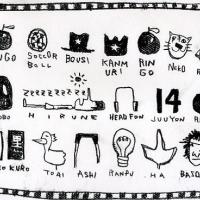 NGO SOCCOR BALL BOUSI KANMURI RINGO NEKO
OBO HIRUNE HEADFON 14 JUUYON
KURO TORI ASHI RANPU HA